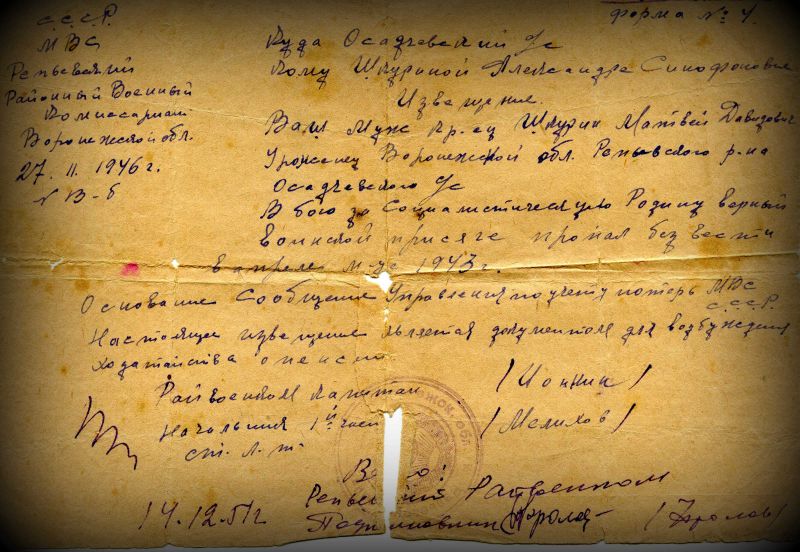 С.С.С.Р.
МВС
Репьевский
Районный Военный
Комиссариат
Воронежской обл.
27.II.1946г.
N В-6
форма № 4.
Куда Осадчевский с/с
Кому Шкуриной Александре
Извещение.
Ваш муж кр-ец Шкурин Матвей Давидович
Уроженец Воронежской обл. Репьевского р-на
Осадчевского с/с
В бою за Социалистическую Родину верный
воинской присяге пропал без вести
в апреле м-це 1943г.
Основание Сообщение Управления по учету потерь МВС
С.С.С.Р.
Настоящее извещение является документом для возбуждения
ходатайства о пенсии
Райвоенком капитан /Ионкин/
Начальник 1й части /Мелихов/
ст. л-т.
Репьевский Райвоенком
14.12.51г Подполковник /Фролов/